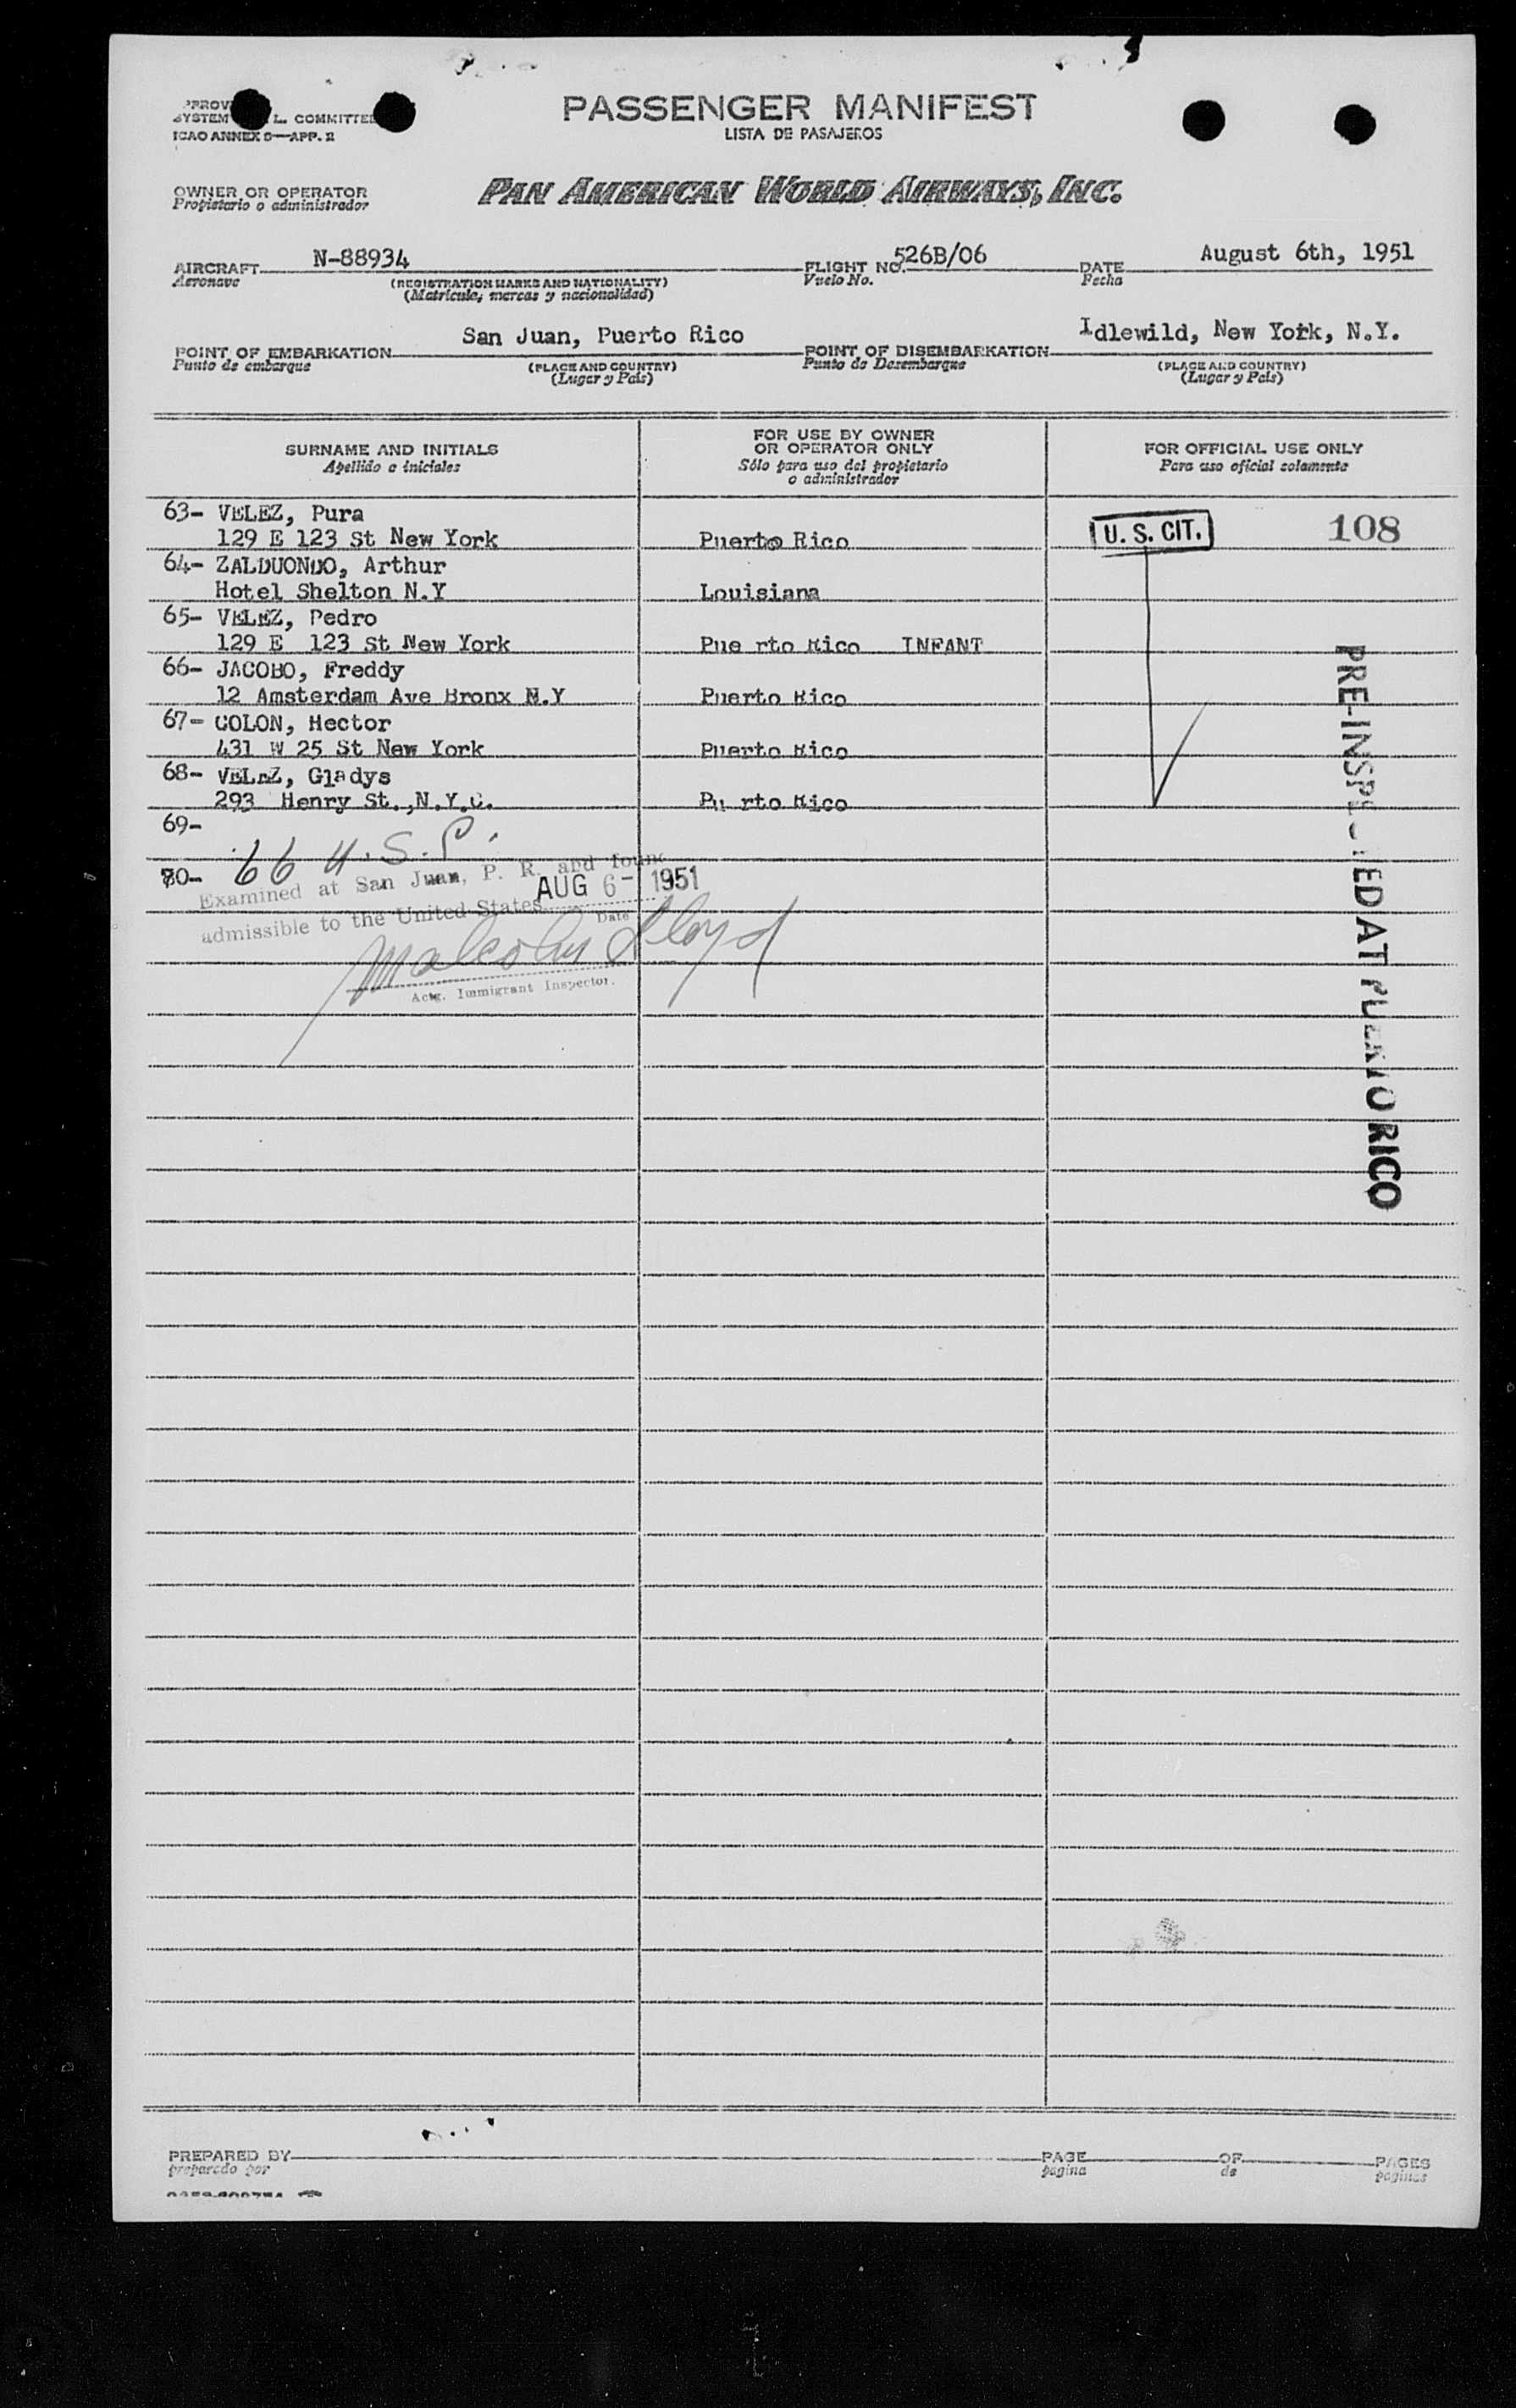 PASSENGER MANIFEST
LISTA DE PASAJEROS
SYSTEM L. COMMITTEE
ICAO ANNEX 9—APP. 2
OWNER OR OPERATOR
Propietario o administrador
PAN AMERICAN WORLD AIRWAYS, INC.
AIRCRAFT N-88934 FLIGHT NO. 526B/06 DATE August 6th, 1951
Aeronave (REGISTRATION MARKS AND NATIONALITY) Vuelo No. Fecha
(Matricula, marcas y nacionalidad)
POINT OF EMBARKATION San Juan, Puerto Rico POINT OF DISEMBARKATION Idlewild, New York, N.Y.
Punto de embarque (PLACE AND COUNTRY) Punto de Desembarque (PLACE AND COUNTRY)
(Lugar y País) (Lugar y País)
SURNAME AND INITIALS
Apellido e iniciales
FOR USE BY OWNER
OR OPERATOR ONLY
Sólo para uso del propietario
o administrador
FOR OFFICIAL USE ONLY
Para uso oficial solamente
63- VELEZ, Pura
129 E 123 St New York Puerto Rico U. S. CIT. 108
64- ZALDUONDO, Arthur
Hotel Shelton N.Y Louisiana
65- VELEZ, Pedro
129 E 123 St New York Pue rto Rico INFANT
66- JACOBO, Freddy
12 Amsterdam Ave Bronx N.Y Puerto Rico
67- COLON, Hector
431 W 25 St New York Puerto Rico
68- VELEZ, Gladys
293 Henry St.,N.Y.C. Pu rto Rico
69-
66 U.S.P.
70-
Examined at San Juan, P. R. and found
admissible to the United States AUG 6- 1951
Date
Malcolm Lloyd
Actg. Immigrant Inspector.
PRE-INSPECTED AT PUERTO RICO
PREPARED BY PAGE OF PAGES
preparado por página de páginas